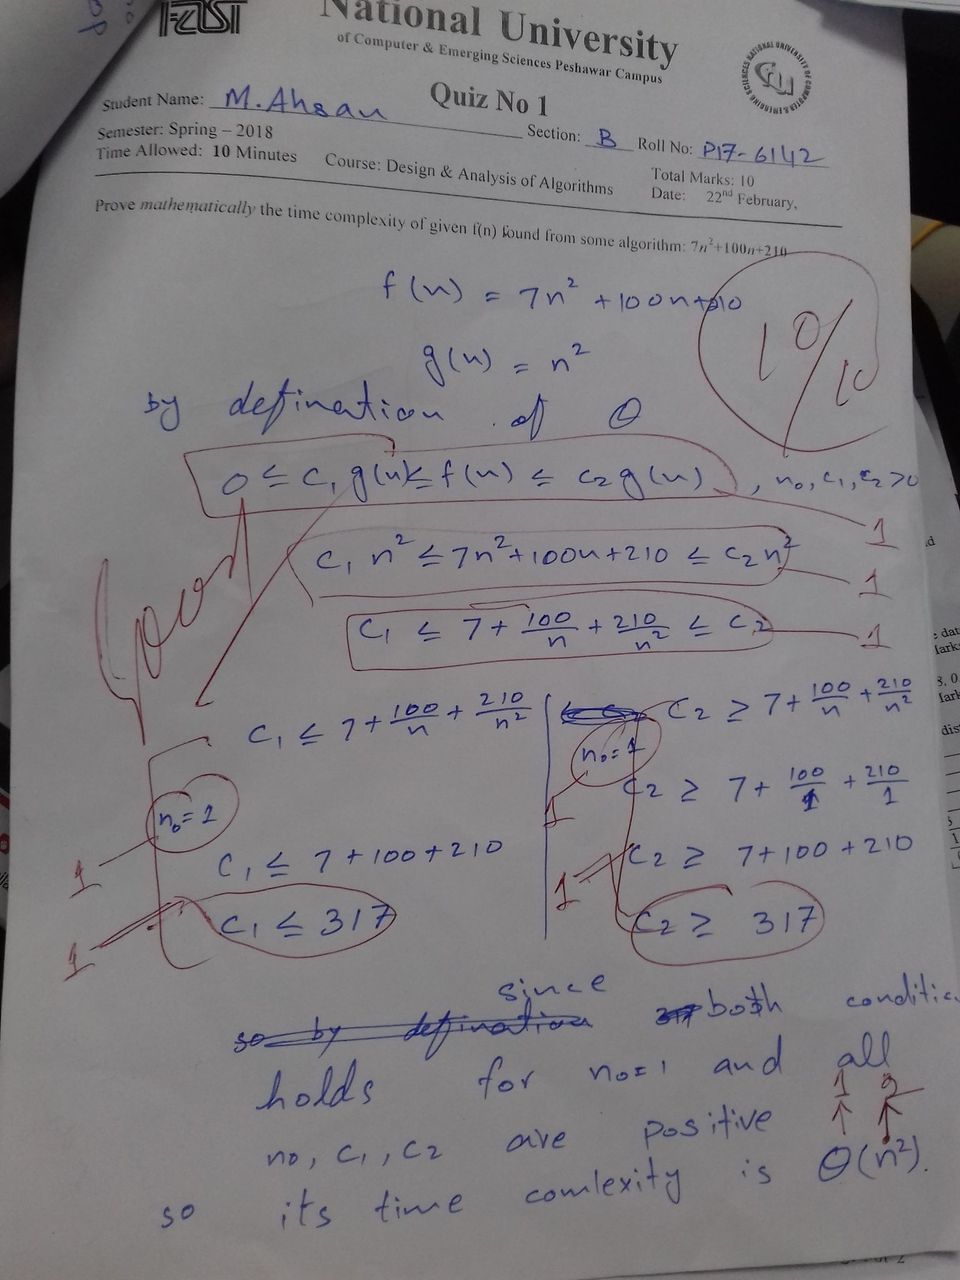 FAST
National University
of Computer & Emerging Sciences Peshawar Campus
Quiz No 1
Student Name: M.Ahsan Section: B Roll No: P17-6142
Semester: Spring – 2018
Time Allowed: 10 Minutes Course: Design & Analysis of Algorithms Total Marks: 10
Date: 22nd February,
Prove mathematically the time complexity of given f(n) found from some algorithm: 7n²+100n+210
f(n) = 7n² + 100n+210
10/10
g(n) = n²
by defination of Θ
0 ≤ C₁ g(n) ≤ f(n) ≤ C₂ g(n) , n₀, C₁, C₂ >0
1
Good
C₁ n² ≤ 7n²+100n+210 ≤ C₂n²
1
C₁ ≤ 7 + 100/n + 210/n² ≤ C₂
1
C₁ ≤ 7 + 100/n + 210/n²
n₀=1
1
C₁ ≤ 7 + 100 + 210
C₁ ≤ 317
1
C₂ ≥ 7 + 100/n + 210/n²
n₀=1
1
C₂ ≥ 7 + 100/1 + 210/1
C₂ ≥ 7+100 + 210
1
C₂ ≥ 317
so by defination since both conditio
holds for n₀=1 and all
1 2
n₀, C₁, C₂ are positive
so its time comlexity is Θ(n²).